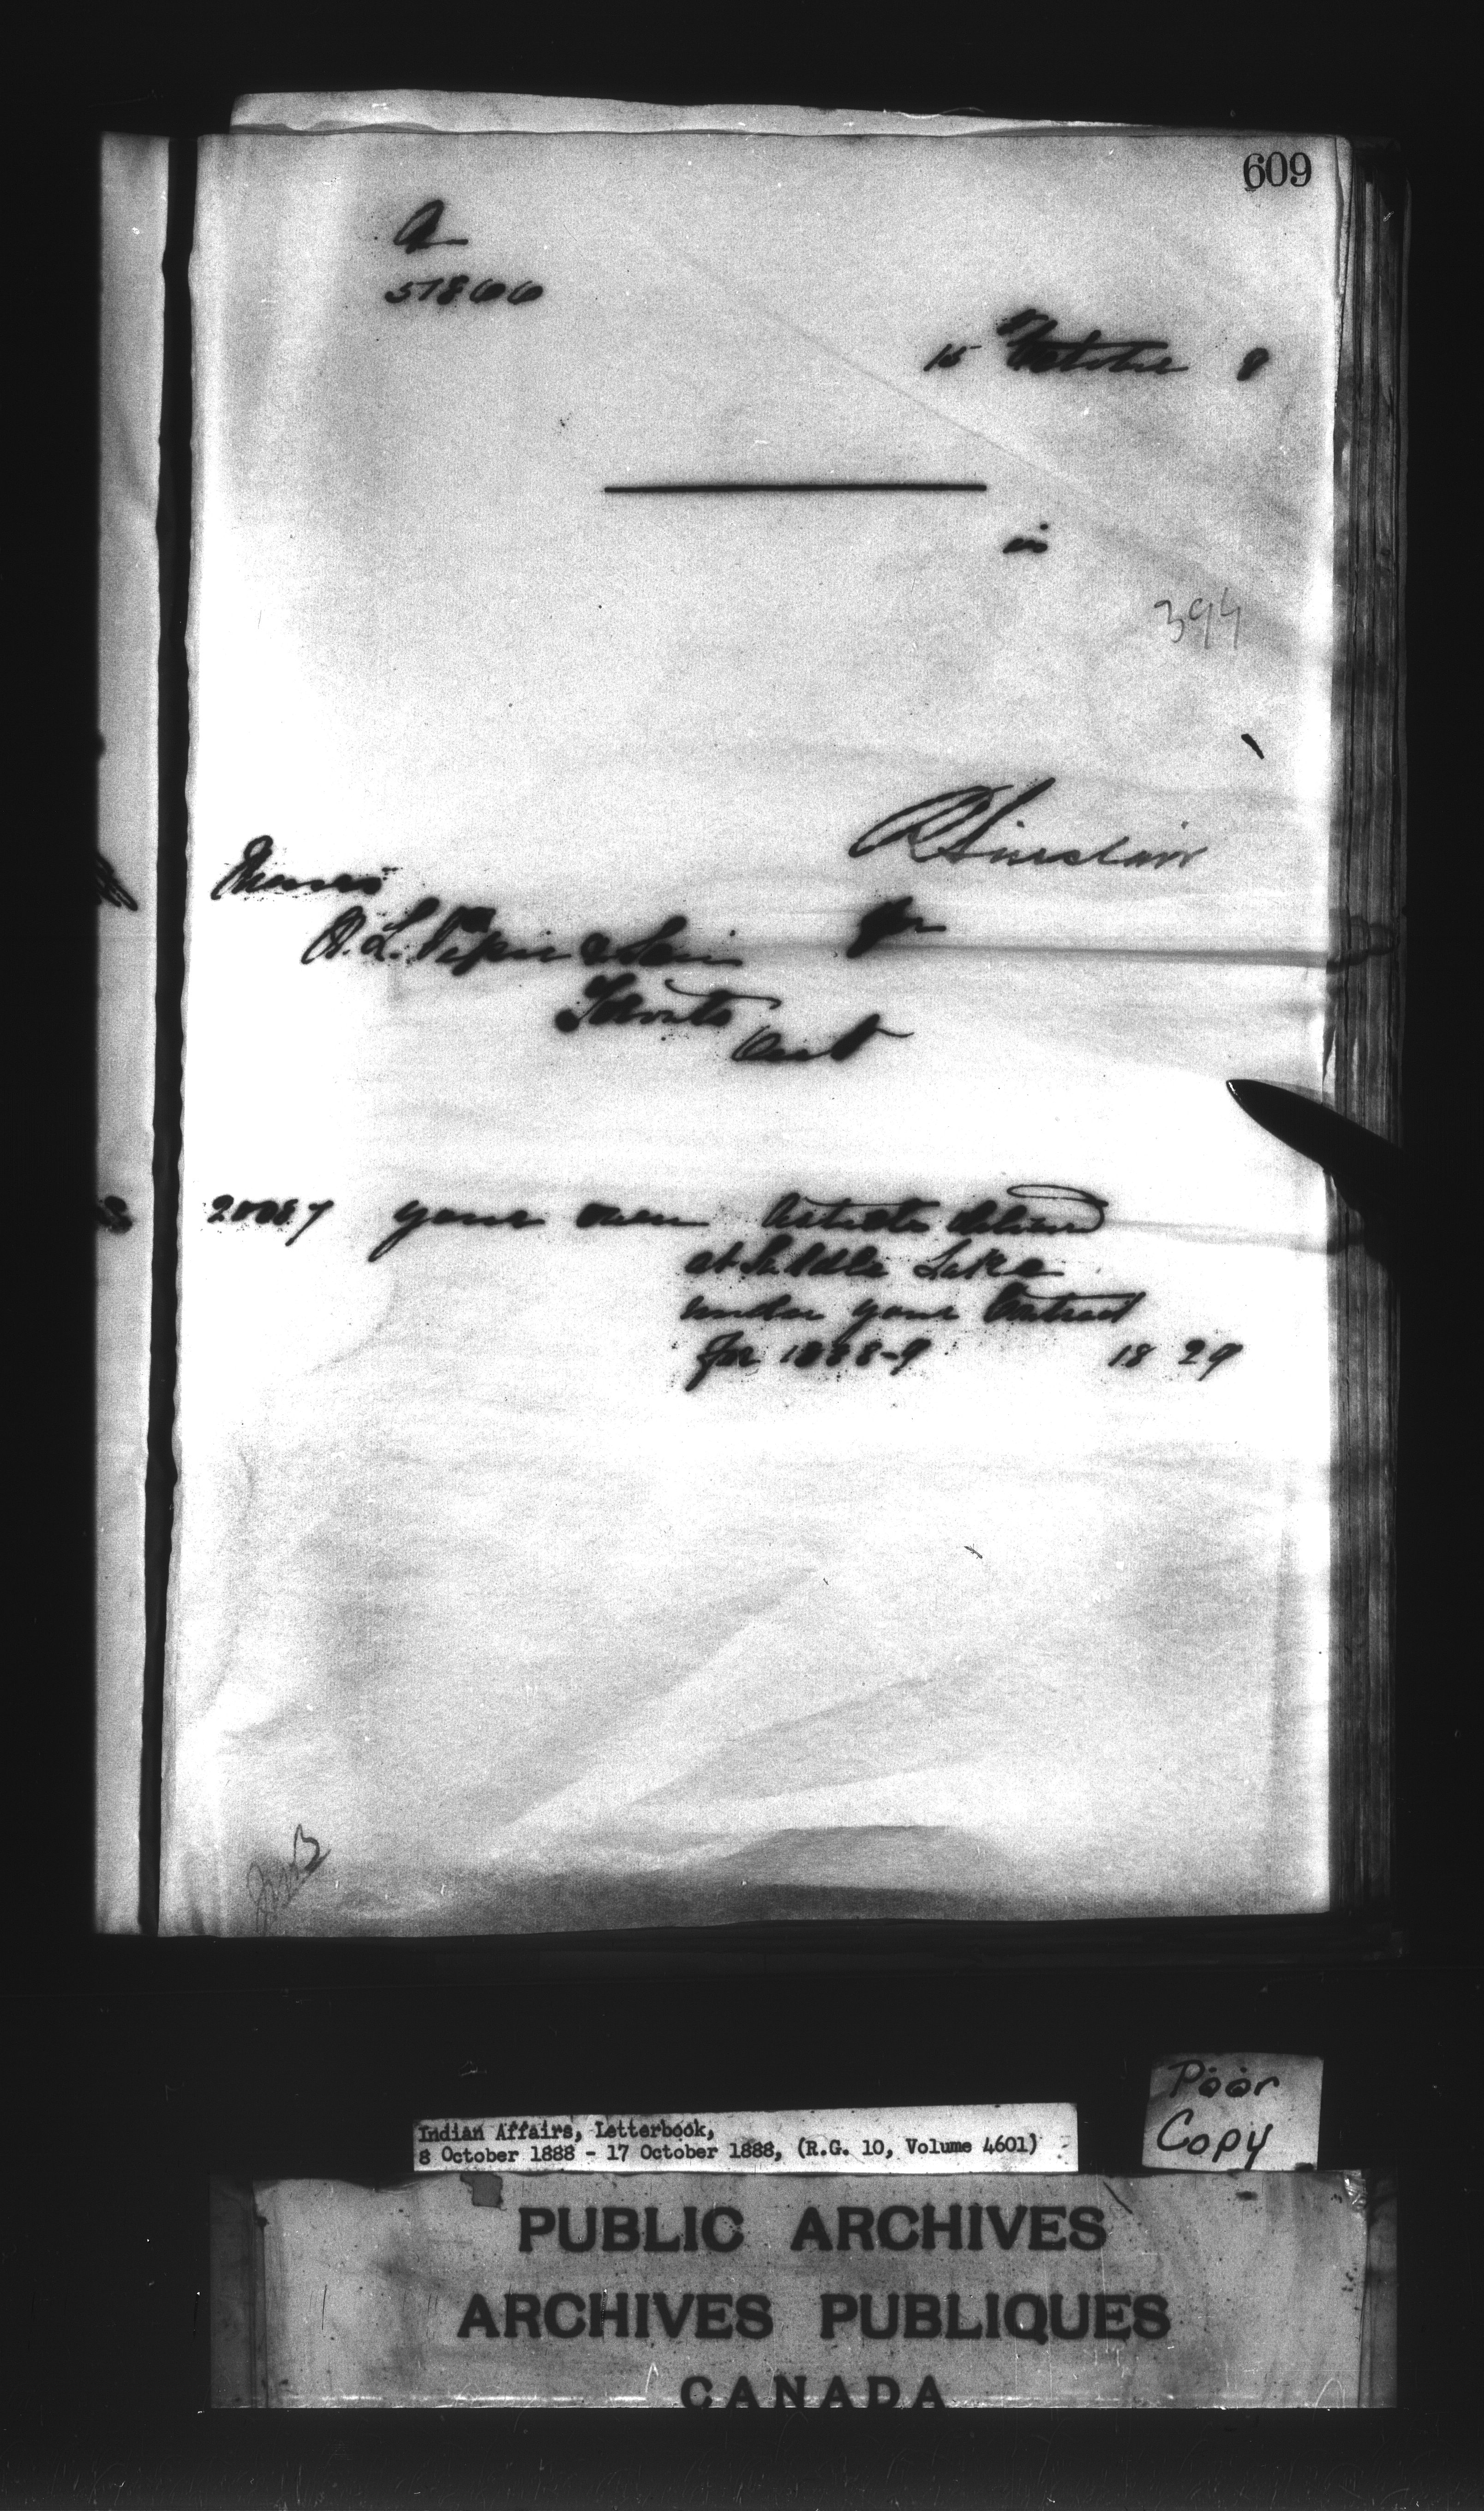 609
A
51866
15 October 8
in
394
R Sinclair
Messrs
for
Toronto
Ont
20087 your own Articles delivered
at Saddle Lake
under your Contract
for 1888-9 18 29
Poor
Copy
Indian Affairs, Letterbook,
8 October 1888 - 17 October 1888, (R.G. 10, Volume 4601)
PUBLIC ARCHIVES
ARCHIVES PUBLIQUES
CANADA